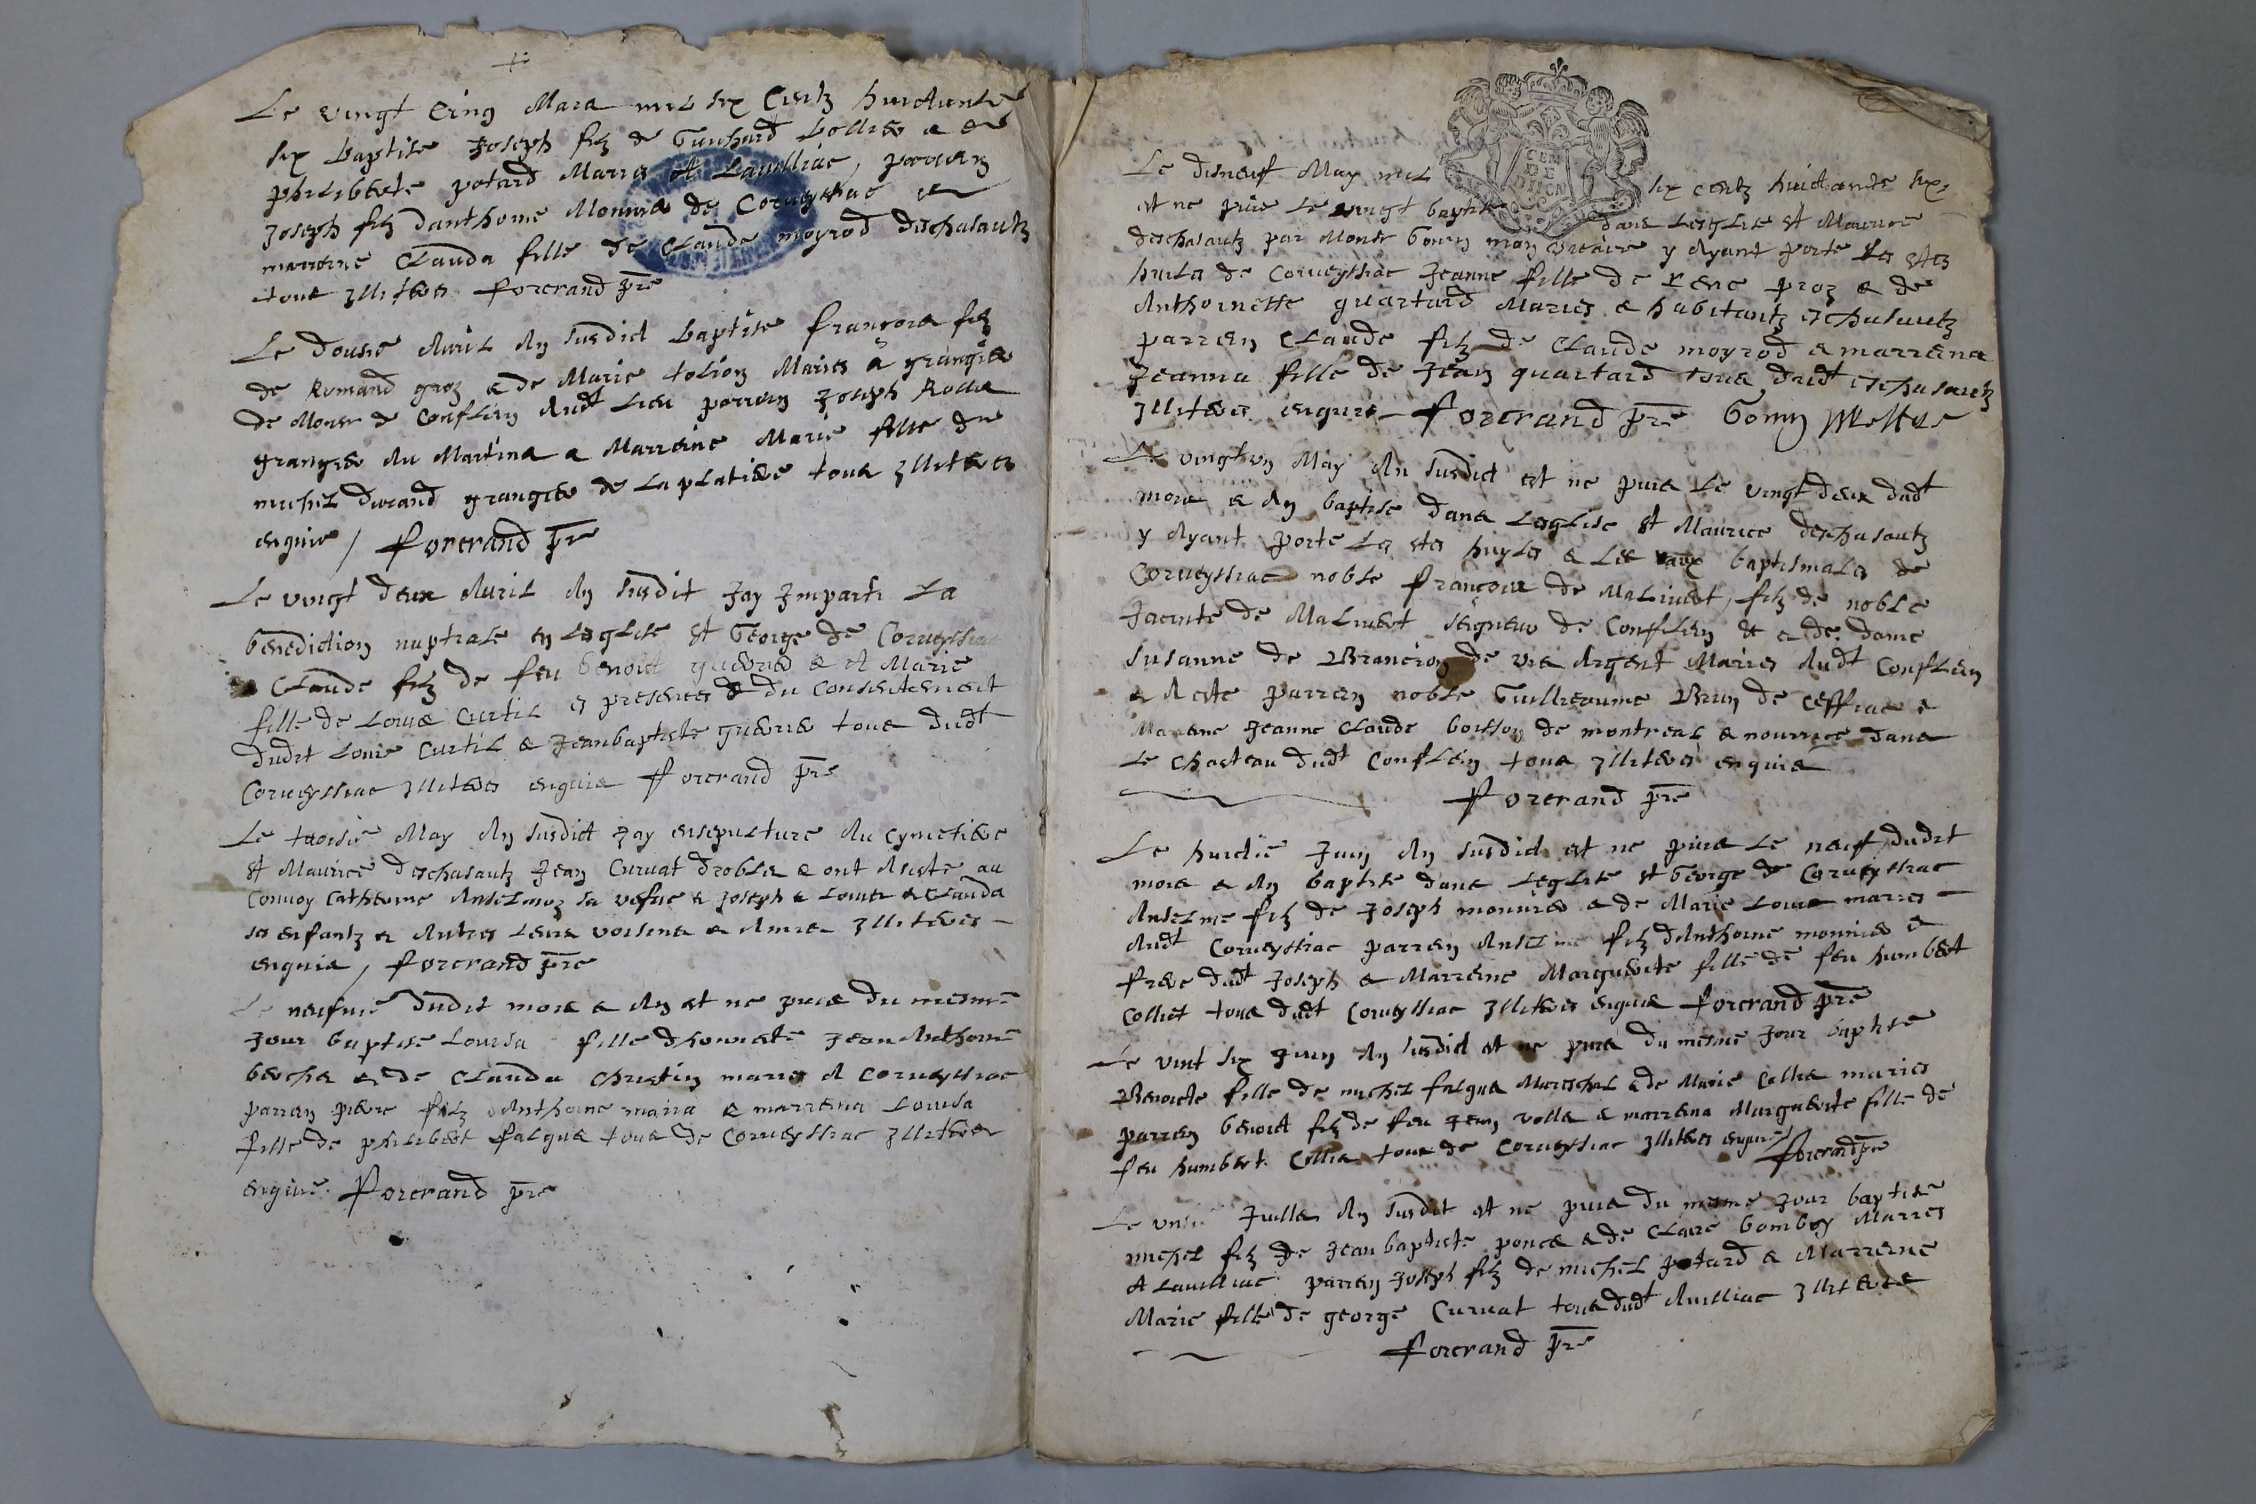 Le vingt cinq Mars mil six Centz huictante
six baptise Joseph filz de Guichard bollier & de
philiberte potard Maries A Lavilliac, parrein
Joseph filz danthoine Monnier de Corveyssiac &
marreine Clauda fille de Claude moyrod deschasautz
tous Jlliteres forcrand pre
Le dousie Auril An susdict baptise francois filz
de Romand groz & de Marie tolion Maries a granger
de Monsr de Conflien Audt lieu parrein Joseph Roux
granger du Martina & Marreine Marie fille de
michel durand granger de la platiere tous Jlliteres
enquis / forcrand pre
Le vingt deux Auril An susdit Jay Imparti La
benediction nuptiale en Leglise st George de Corveyssiac
a Claude filz de feu benoict guerrier & A Marie
fille de Louis Curtil es presences & du Consentement
dudit Louis Curtil & Jean baptiste guerrier tous dudt
Corveyssiac Jlliteres enquis forcrand pre
Le troisie May An susdict Jay ensepulture Au Cymetiere
st Maurice deschasautz Jean Curvat drobles & ont Assiste au
Convoy Catherine Anselmoz sa vefue & Joseph & Louis & Clauda
ses enfantz & Autres Leurs voisins & Amis Jlliteres
enquis / forcrand pre
Le neufuie dudit mois & An est ne puis du mesme
Jour baptise Louisa fille dhonneste Jean Anthoine
berche & de Clauda Christin maries A Corveyssiac
parrein pierre filz Anthoine maira & marreina Louisa
fille de philibert falque tous de Corveyssiac Jlliteres
enquis. forcrand pre
Le disneuf May mil six centz huictante six
est ne puis Le vingt baptise dans Lesglise st Maurice
deschasautz par Monsr Gouy mon vicaire y Ayant porte Les stes
huiles de Corveyssiac Jeanne fille de Rene proz & de
Anthoinette quartard Maries & habitantz eschasautz
parrein Claude filz de Claude moyrod & marreina
Jeanna fille de Jean quartard tous dudt eschasautz
Jlliteres enquis forcrand pre
Le vingt un May An susdict est ne puis Le vingt deux dudt
mois & An baptise dans Leglise st Maurice deschasautz
y Ayant porte Les stes huyles & Les eaux baptismales de
Corveyssiac noble francois de Malivert, filz de noble
Jacinte de Malivert seigneur de Conflien & & de dame
Susanne de Brancion de vis Argent Maries Audt Conflien
& A este parrein noble Guillieaume Brun de Ceffiac &
Mareine Jeanne Claude boisson de montreal & nourrice dans
Le Chasteau dudt Conflien tous Jlliteres enquis
forcrand pre
Le huictie Juin An susdict est ne puis Le neuf dudit
mois & An baptise dans Leglise st George de Corveyssiac
Anselme filz de Joseph monnier & de Marie Louis maries
Audt Corveyssiac parrein Anselme filz dAnthoine monnier &
frere dudt Joseph & Marreine Marguerite fille de feu humbert
Colliet tous dudt Corveyssiac Jlliteres enquis forcrand pre
Le vint six Juin An susdict est ne puis du mesme Jour baptise
Benoicte fille de michel falque Mareschal & de Marie Collia maries
parrein benoict filz de feu Jean volle & marreina Marguerite fille de
feu humbert Collia tous de Corveyssiac Jlliteres enquis forcrand pre
Le unsie Juillet An susdit est ne puis du mesme Jour baptise
michel filz de Jean baptiste poncet & de Claire bomboy Maries
A Lavilliac parrein Joseph filz de michel potard & Marreine
Marie fille de george Curvat tous dudt Avilliac Jlliteres
forcrand pre